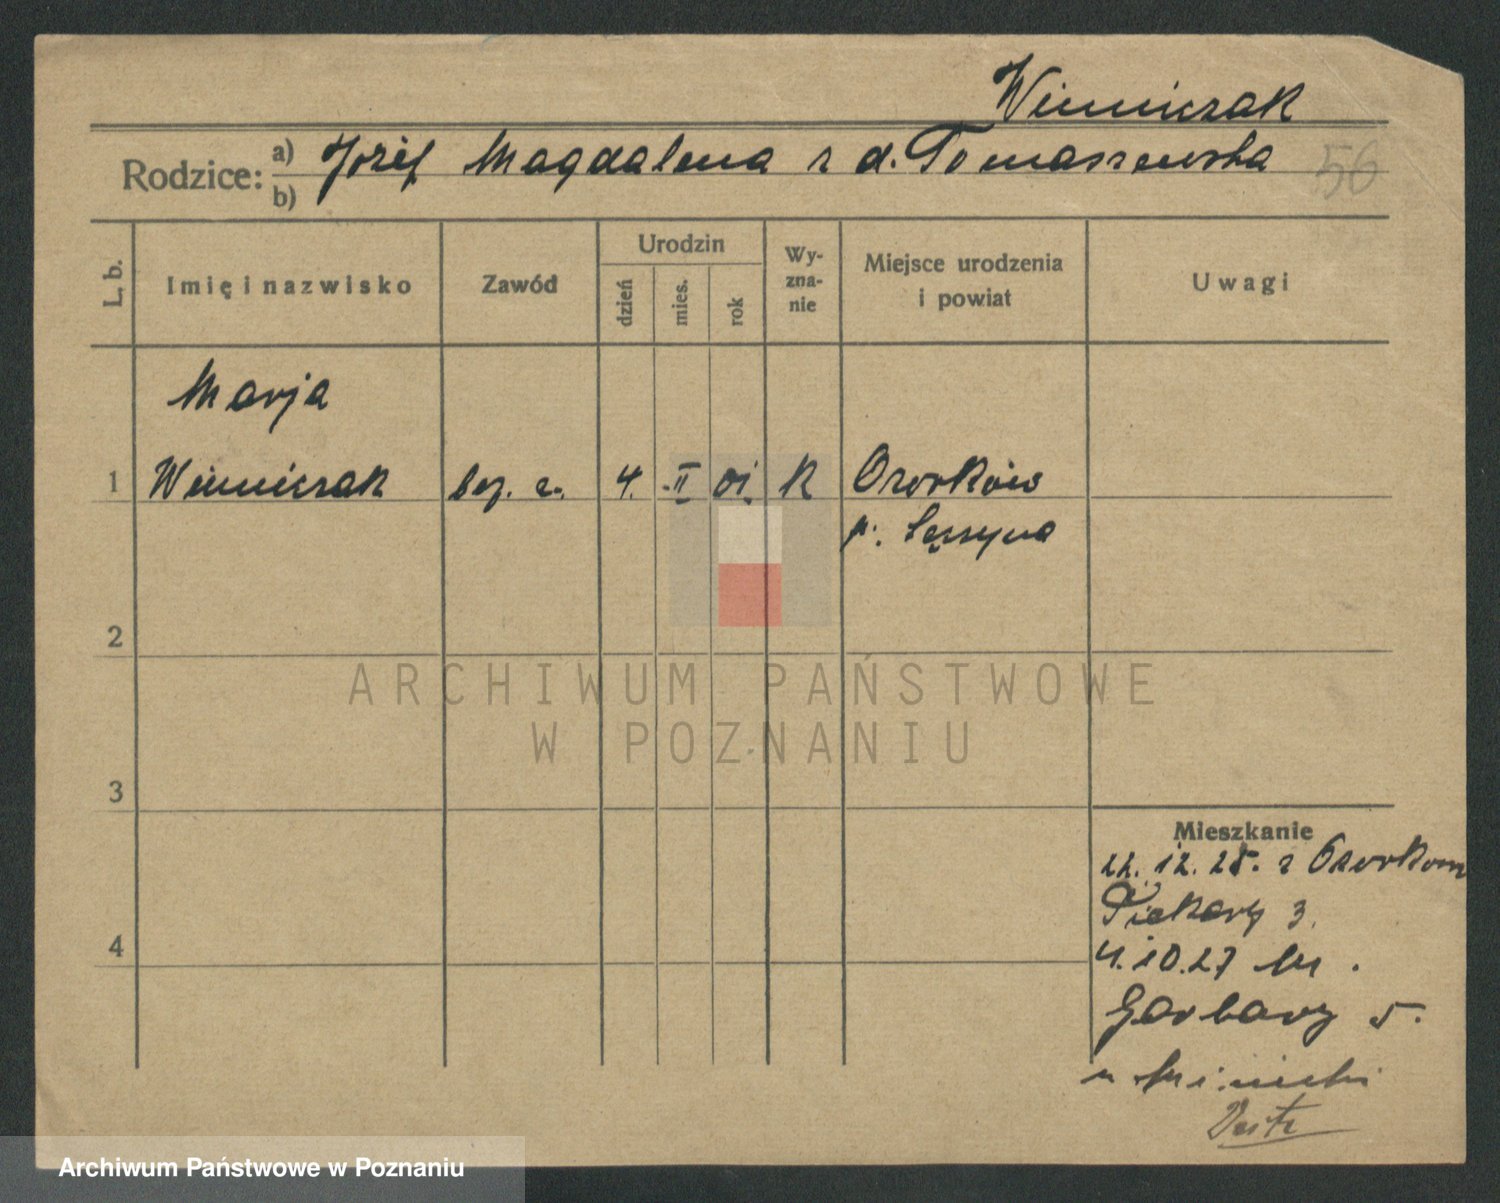 Winniczak
Rodzice: a) Józef Magdalena z d. Tomaszewska
b)
56
L. b.
Imię i nazwisko
Zawód
Urodzin
dzień
mies.
rok
Wy-
zna-
nie
Miejsce urodzenia
i powiat
Uwagi
Marja
1 Winniczak bez. z. 4. II 01. K Ozorków
p. Łęczyca
2
3
4
Mieszkanie
22. 12. 25. z Ozorkow
Piekary 3.
4.10.27
Garbary 5.
ARCHIWUM PAŃSTWOWE
W POZNANIU
Archiwum Państwowe w Poznaniu